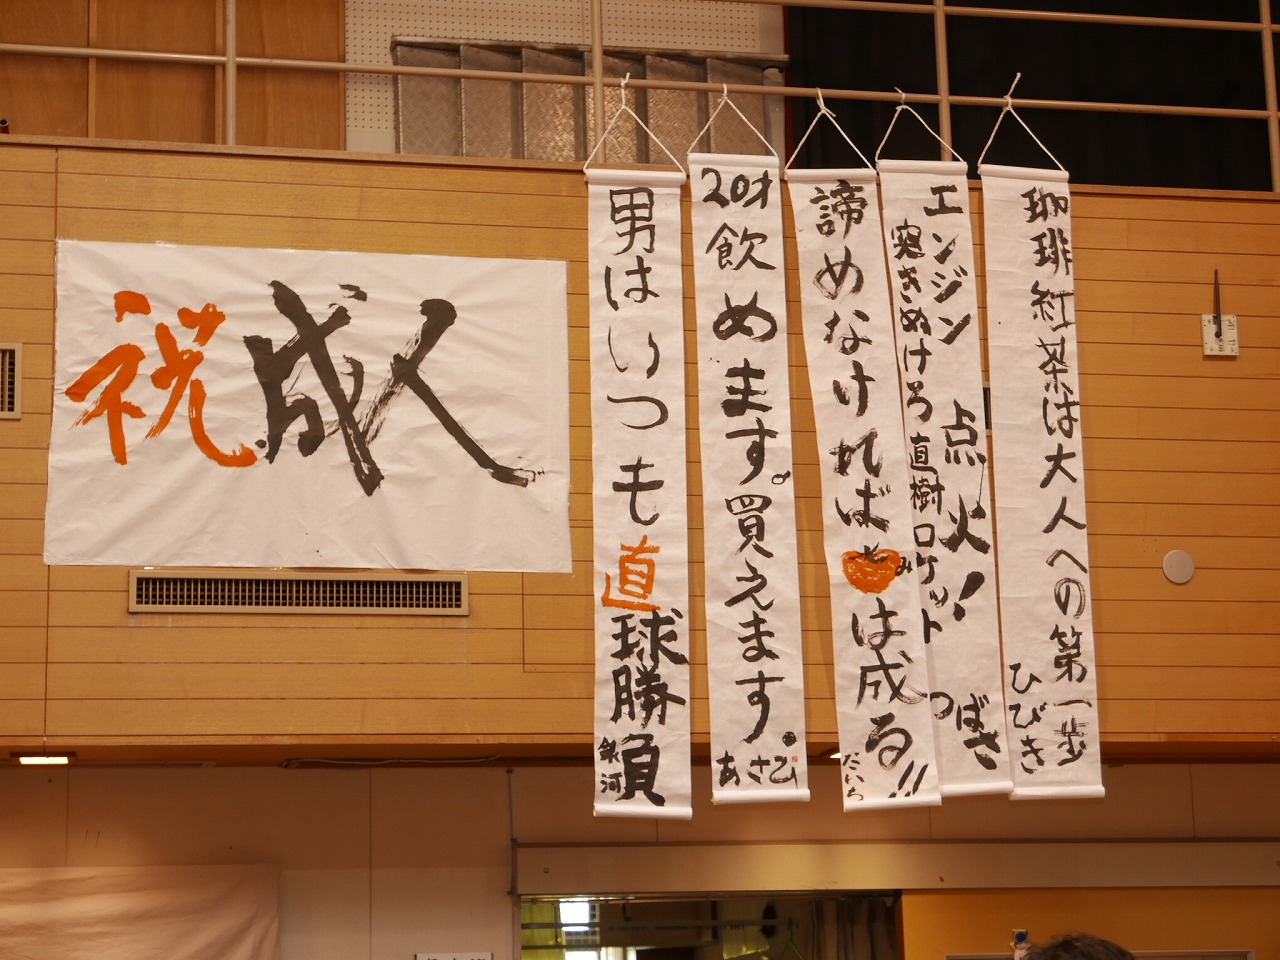 祝成人
珈琲紅茶は大人への第一歩
ひびき
エンジン点火!
突きぬけろ直樹ロケット
つばさ
諦めなければ
は成る!!
だいち
20才飲めます。買えます。
あさひ
男はいつも直球勝負
銀河